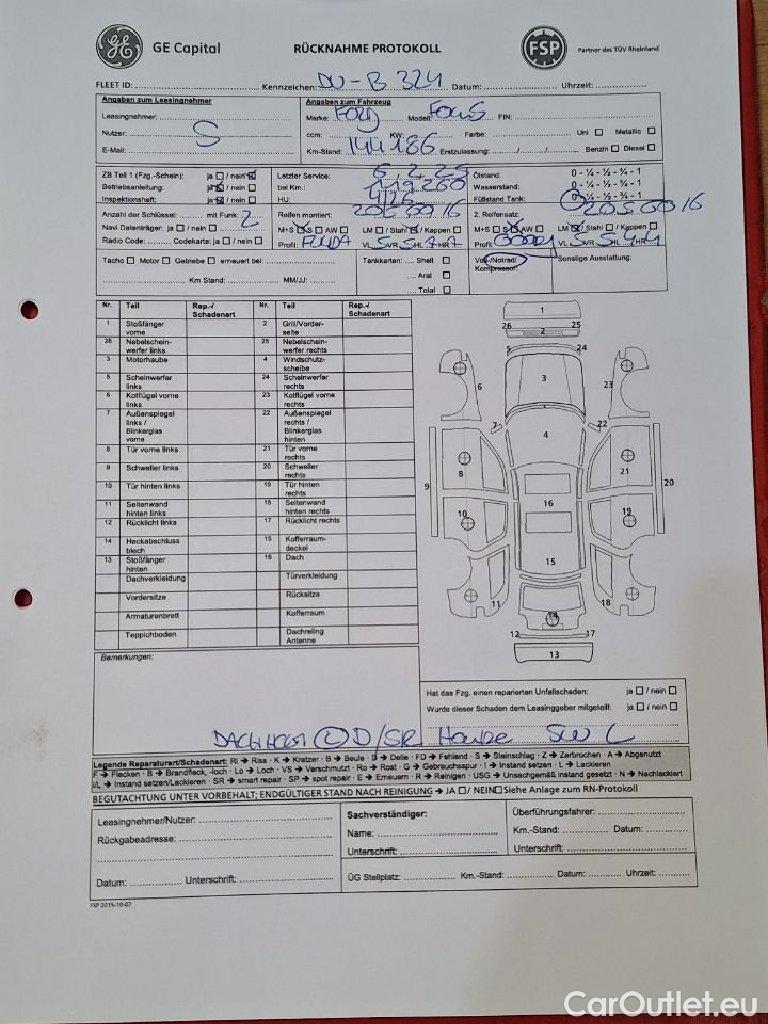 GE GE Capital RÜCKNAHME PROTOKOLL FSP Partner des TÜV Rheinland
FLEET ID: Kennzeichen: DU-B 324 Datum: Uhrzeit:
Angaben zum Leasingnehmer Angaben zum Fahrzeug
Leasingnehmer: Marke: FORD Modell: FOCUS FIN:
Nutzer: S ccm: KW: Farbe: Uni ☐ Metallic ☐
E-Mail: Km-Stand: 144186 Erstzulassung: Benzin ☐ Diesel ☐
ZB Teil 1 (Fzg.-Schein): ja ☐ / nein ☒ Letzter Service: 6.2.25 Ölstand: 0 - ¼ - ½ - ¾ - 1
Betriebsanleitung: ja ☒ / nein ☐ bei Km: 119260 Wasserstand: 0 - ¼ - ½ - ¾ - 1
Inspektionsheft: ja ☒ / nein ☐ HU: 4/26 Füllstand Tank: 0 - ¼ - ½ - ¾ - 1
Anzahl der Schlüssel: mit Funk: 2 Reifen montiert: 205 60 16 2. Reifensatz: 205 60 16
Navi Datenträger: ja ☐ / nein ☐ M+S ☒ S ☐ AW ☐ LM ☐ / Stahl ☐ / Kappen ☐ M+S ☐ S ☒ AW ☐ LM ☒ / Stahl ☐ / Kappen ☐
Radio Code: Codekarte: ja ☐ / nein ☐ Profil: FULDA VL 5 VR 5 HL 7 HR 7 Profil: VL 5 VR 5 HL 4 HR 4
Tacho ☐ Motor ☐ Getriebe ☐ erneuert bei: Tankkarten: Shell ☐ Voll-/Notrad/ Sonstige Ausstattung:
Kompressor:
Aral ☐
Km Stand: MM/JJ: Total ☐
Nr. Teil Rep.-/ Schadenart Nr. Teil Rep.-/ Schadenart
1 Stoßfänger vorne 2 Grill/Vorderseite
26 Nebelscheinwerfer links 25 Nebelscheinwerfer rechts
3 Motorhaube 4 Windschutzscheibe
5 Scheinwerfer links 24 Scheinwerfer rechts
6 Kotflügel vorne links 23 Kotflügel vorne rechts
7 Außenspiegel links / Blinkerglas vorne 22 Außenspiegel rechts / Blinkerglas hinten
8 Tür vorne links 21 Tür vorne rechts
9 Schweller links 20 Schweller rechts
10 Tür hinten links 19 Tür hinten rechts
11 Seitenwand hinten links 18 Seitenwand hinten rechts
12 Rücklicht links 17 Rücklicht rechts
14 Heckabschlussblech 15 Kofferraumdeckel
13 Stoßfänger hinten 16 Dach
Dachverkleidung Türverkleidung
Vordersitze Rücksitze
Armaturenbrett Kofferraum
Teppichboden Dachreling Antenne
1
26 2 25
5 24
6 3 23
7 22
4
8 21
9 16 20
10 19
15
11 14 18
12 17
13
Bemerkungen:
Hat das Fzg. einen reparierten Unfallschaden: ja ☐ / nein ☐
Wurde dieser Schaden dem Leasinggeber mitgeteilt: ja ☐ / nein ☐
Legende Reparaturart/Schadenart: Ri → Riss - K → Kratzer - B → Beule - D → Delle - FD → Fehlend - S → Steinschlag - Z → Zerbrochen - A → Abgenutzt
F → Flecken - B → Brandfleck, -loch - Lo → Loch - VS → Verschmutzt - Ro → Rost - G → Gebrauchsspur - I → Instand setzen - L → Lackieren
I/L → Instand setzen/Lackieren - SR → smart repair - SP → spot repair - E → Erneuern - R → Reinigen - USG → Unsachgemäß instand gesetzt - N → Nachlackiert
BEGUTACHTUNG UNTER VORBEHALT; ENDGÜLTIGER STAND NACH REINIGUNG → JA ☐/ NEIN☐ Siehe Anlage zum RN-Protokoll
Leasingnehmer/Nutzer: Sachverständiger: Überführungsfahrer:
Rückgabeadresse: Name: Km.-Stand: Datum:
Unterschrift: Unterschrift:
Datum: Unterschrift: ÜG Stellplatz: Km.-Stand: Datum: Uhrzeit:
FSP 2-015-10-07
CarOutlet.eu